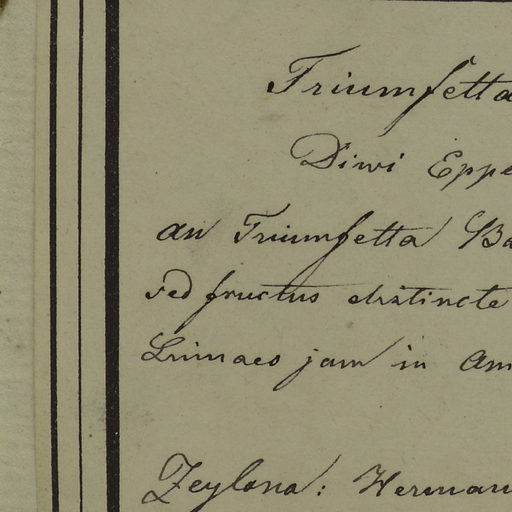 Triumfetta
Diwi Eppe
an Triumfetta Ba
sed fructus distincte
Linnaeo jam in Am
Zeylona: Herman